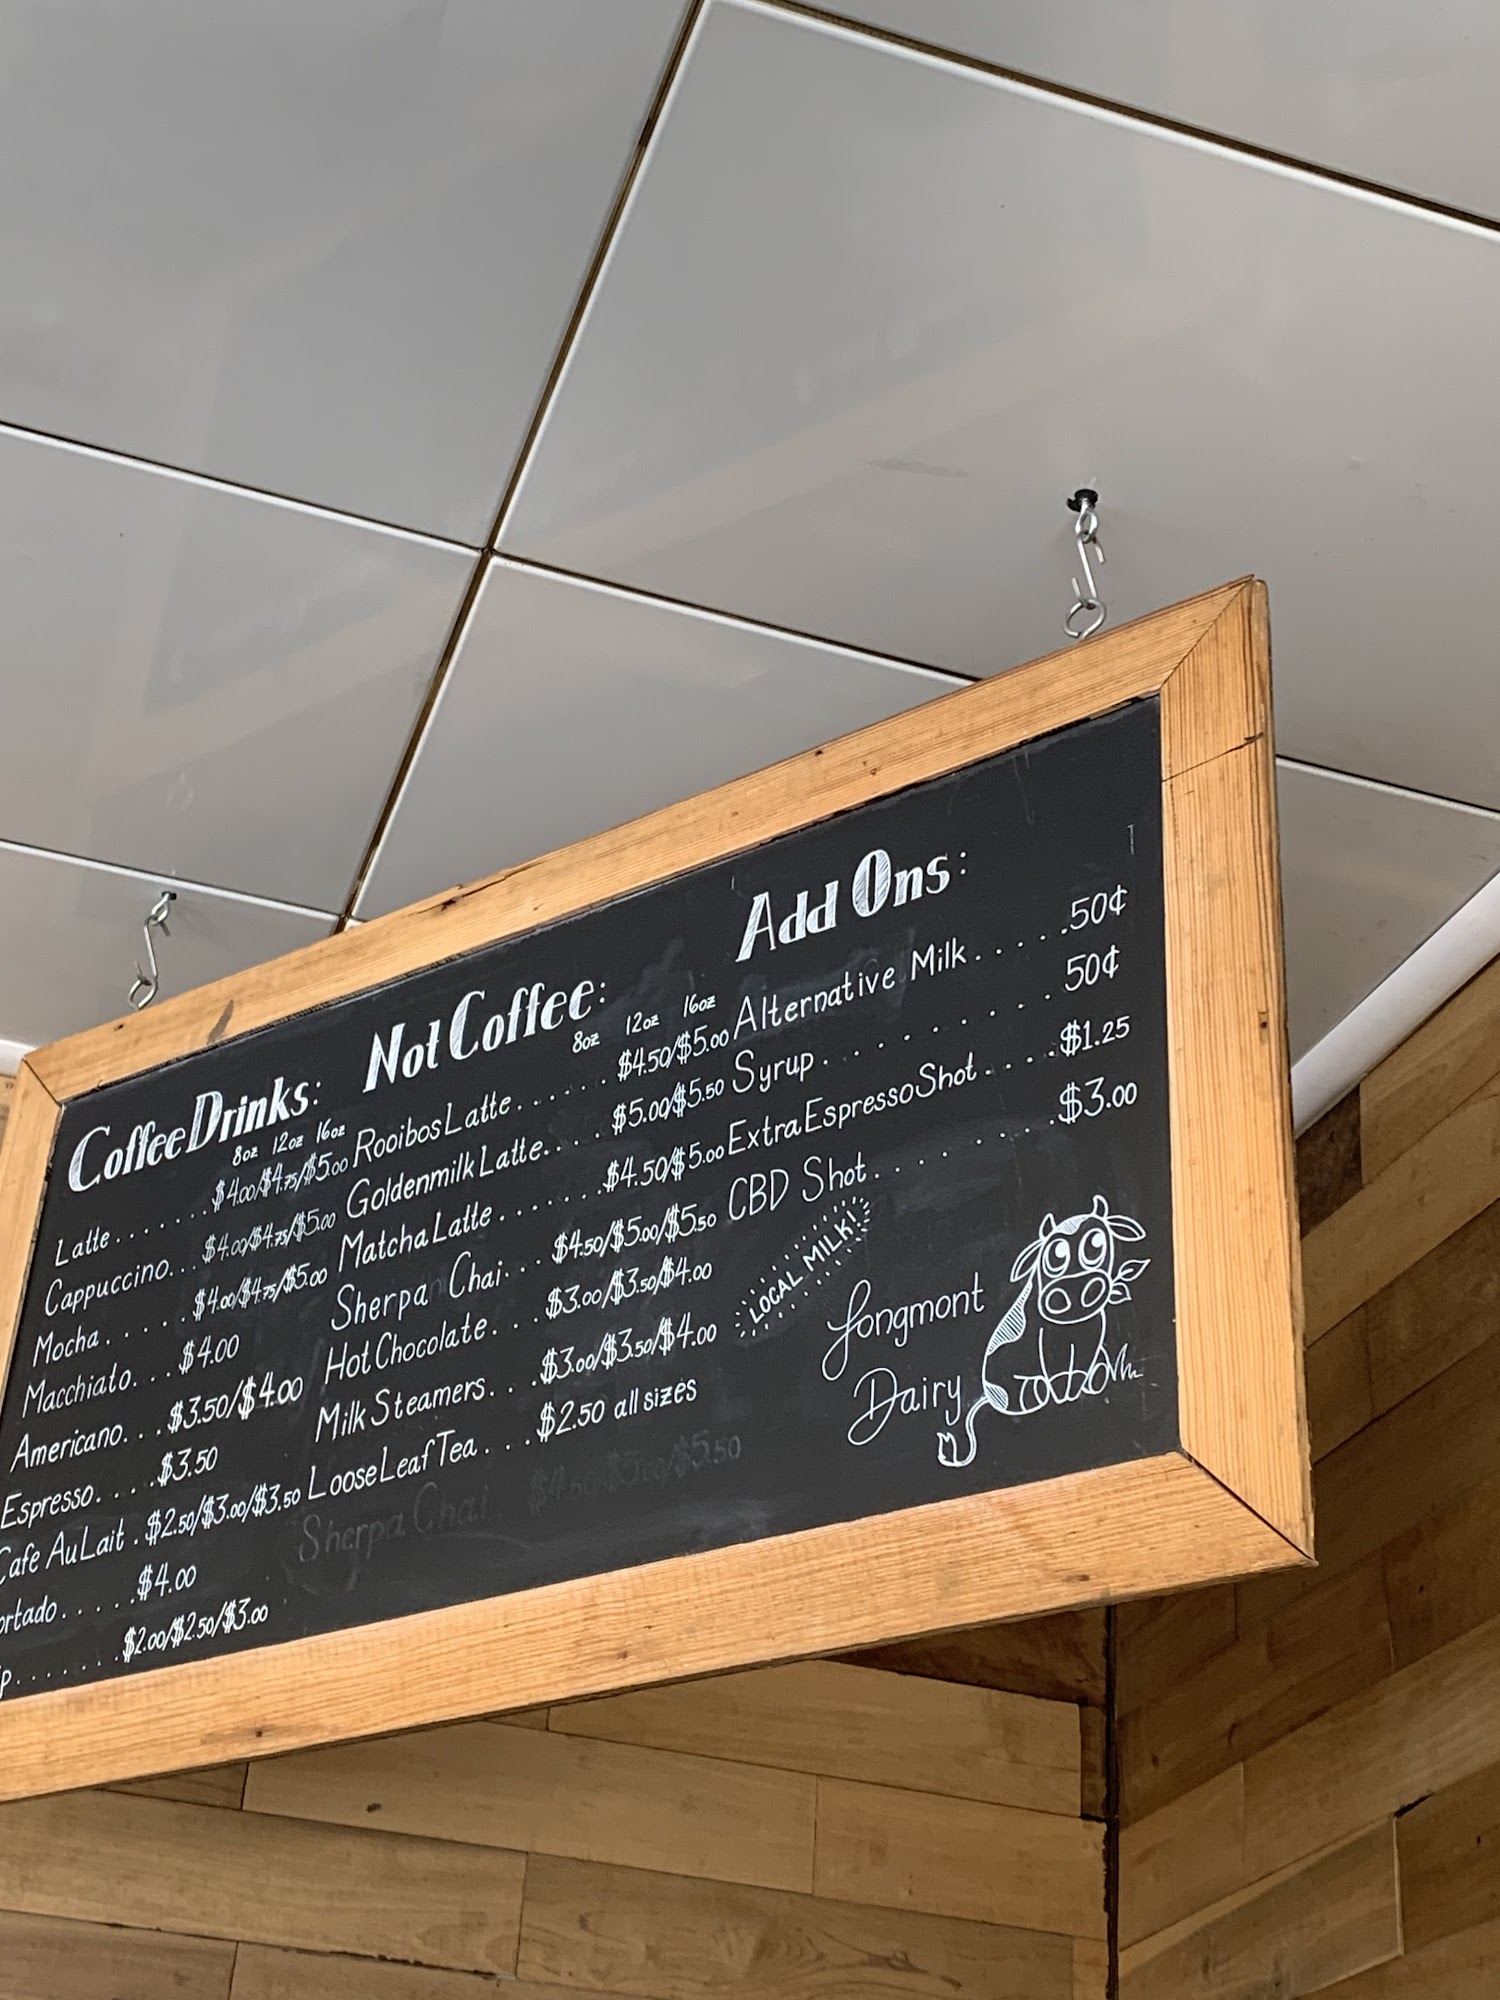 Coffee Drinks:
8oz 12oz 16oz
Latte....... $4.00/$4.75/$5.00
Cappuccino... $4.00/$4.75/$5.00
Mocha...... $4.00/$4.75/$5.00
Macchiato... $4.00
Americano... $3.50/$4.00
Espresso..... $3.50
Cafe Au Lait . $2.50/$3.00/$3.50
ortado..... $4.00
p....... $2.00/$2.50/$3.00
Not Coffee:
8oz 12oz 16oz
Rooibos Latte....... $4.50/$5.00
Goldenmilk Latte.... $5.00/$5.50
Matcha Latte....... $4.50/$5.00
Sherpa Chai... $4.50/$5.00/$5.50
Hot Chocolate... $3.00/$3.50/$4.00
Milk Steamers... $3.00/$3.50/$4.00
Loose Leaf Tea.... $2.50 all sizes
Sherpa Chai $4.50/$5.00/$5.50
Add Ons:
Alternative Milk..... 50¢
Syrup....... 50¢
Extra Espresso Shot.... $1.25
CBD Shot....... $3.00
LOCAL MILK!
Longmont
Dairy